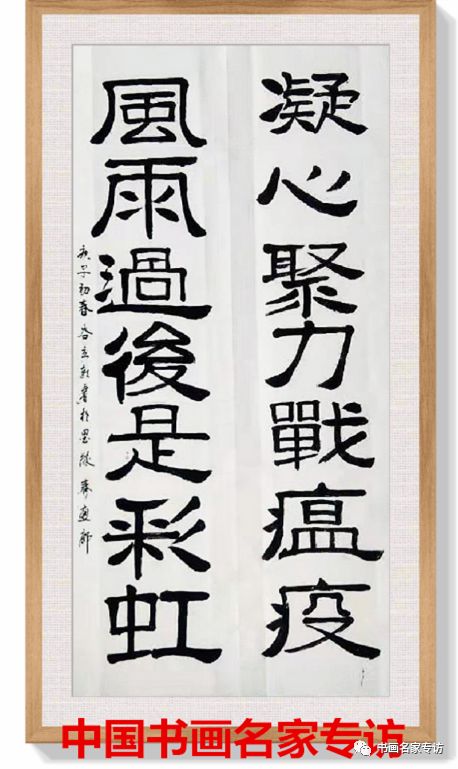 凝心聚力戰瘟疫
風雨過後是彩虹
庚子初春
中国书画名家专访
书画名家专访